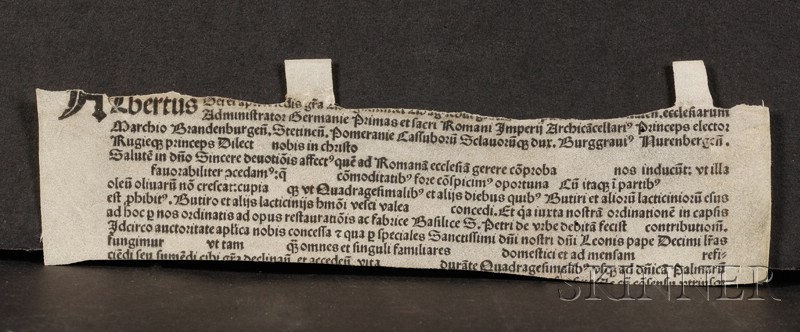 Albertus Dei et aplice sedis gr̃a ecclesiarum
Administrator Germanie Primas et sacri Romani Imperij Archicãcellari⁹ Princeps elector
Marchio Brandenburgen̄. Stetinen̄. Pomeranie Cassuborū Sclauorūꝗꝫ dux. Burggraui⁹ Nurenbergen̄.
Rugieꝗꝫ princeps Dilect nobis in christo
Salutē in dño Sincere deuotiōis affect⁹ quē ad Romanã ecclesiã gerere cōproba nos inducūt: vt illa
fauorabiliter ꝓcedam⁹: q̄ cōmoditatib⁹ fore cōspicim⁹ oportuna Cū itaꝗꝫ ĩ partib⁹
oleū oliuarū nō crescat: cupia ꝗꝫ vt Quadragesimalib⁹ et alijs dieb⁹ quib⁹ Butiri et aliorū lacticiniorū esus
est ꝓhibit⁹. Butiro et alijs lacticinijs hmōi vesci valea concedi. Et q̃a iuxta nostrã ordinationē in capsis
ad hoc p nos ordinatis ad opus restauratiōis ac fabrice Basilice S. Petri de vrbe debitã fecist contributionū.
Idcirco auctoritate aplica nobis concessa ⁊ qua p speciales Sanctissimi dñi nostri dñi Leonis pape Decimi lr̃as
fungimur vt tam ꝗꝫ omnes et singuli familiares domestici et ad mensam refi-
ciēdi seu sumēdi cibi gr̃a declinañ. et acceden̄. vita durãte Quadragesimalib⁹ vsꝗꝫ ad dñica Palmarū
SKINNER